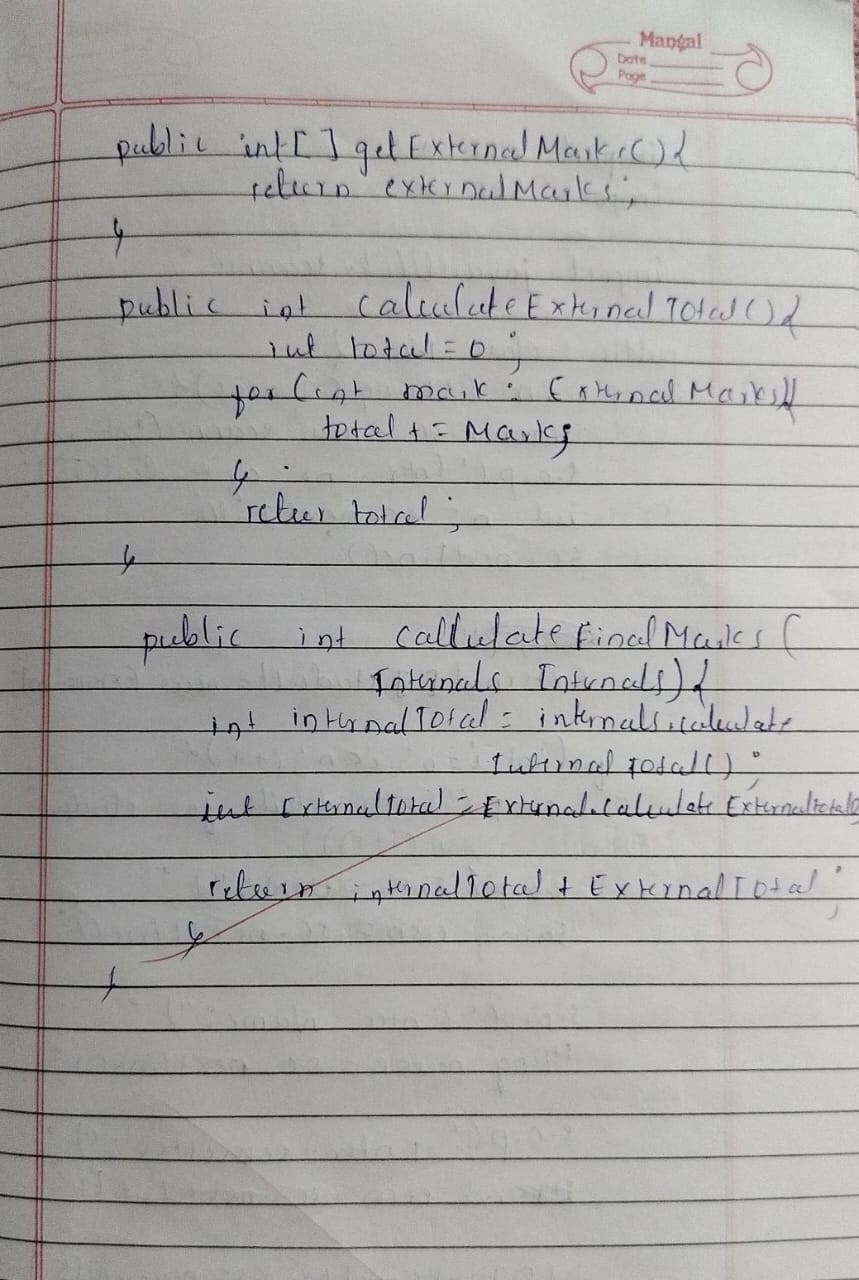 Mangal
Date
Page
public int[] getExternalMarks(){
return externalMarks;
}
public int calculateExternalTotal(){
int total = 0;
for (int mark : ExternalMarks){
total += Marks
}
retur total;
}
public int callulateFinalMarks (
Internals Internals){
int internalTotal = internals.calculate
Internal total();
int ExternalTotal = External.Calculate Externaltotal()
return internalTotal + ExternalTotal;
}
}